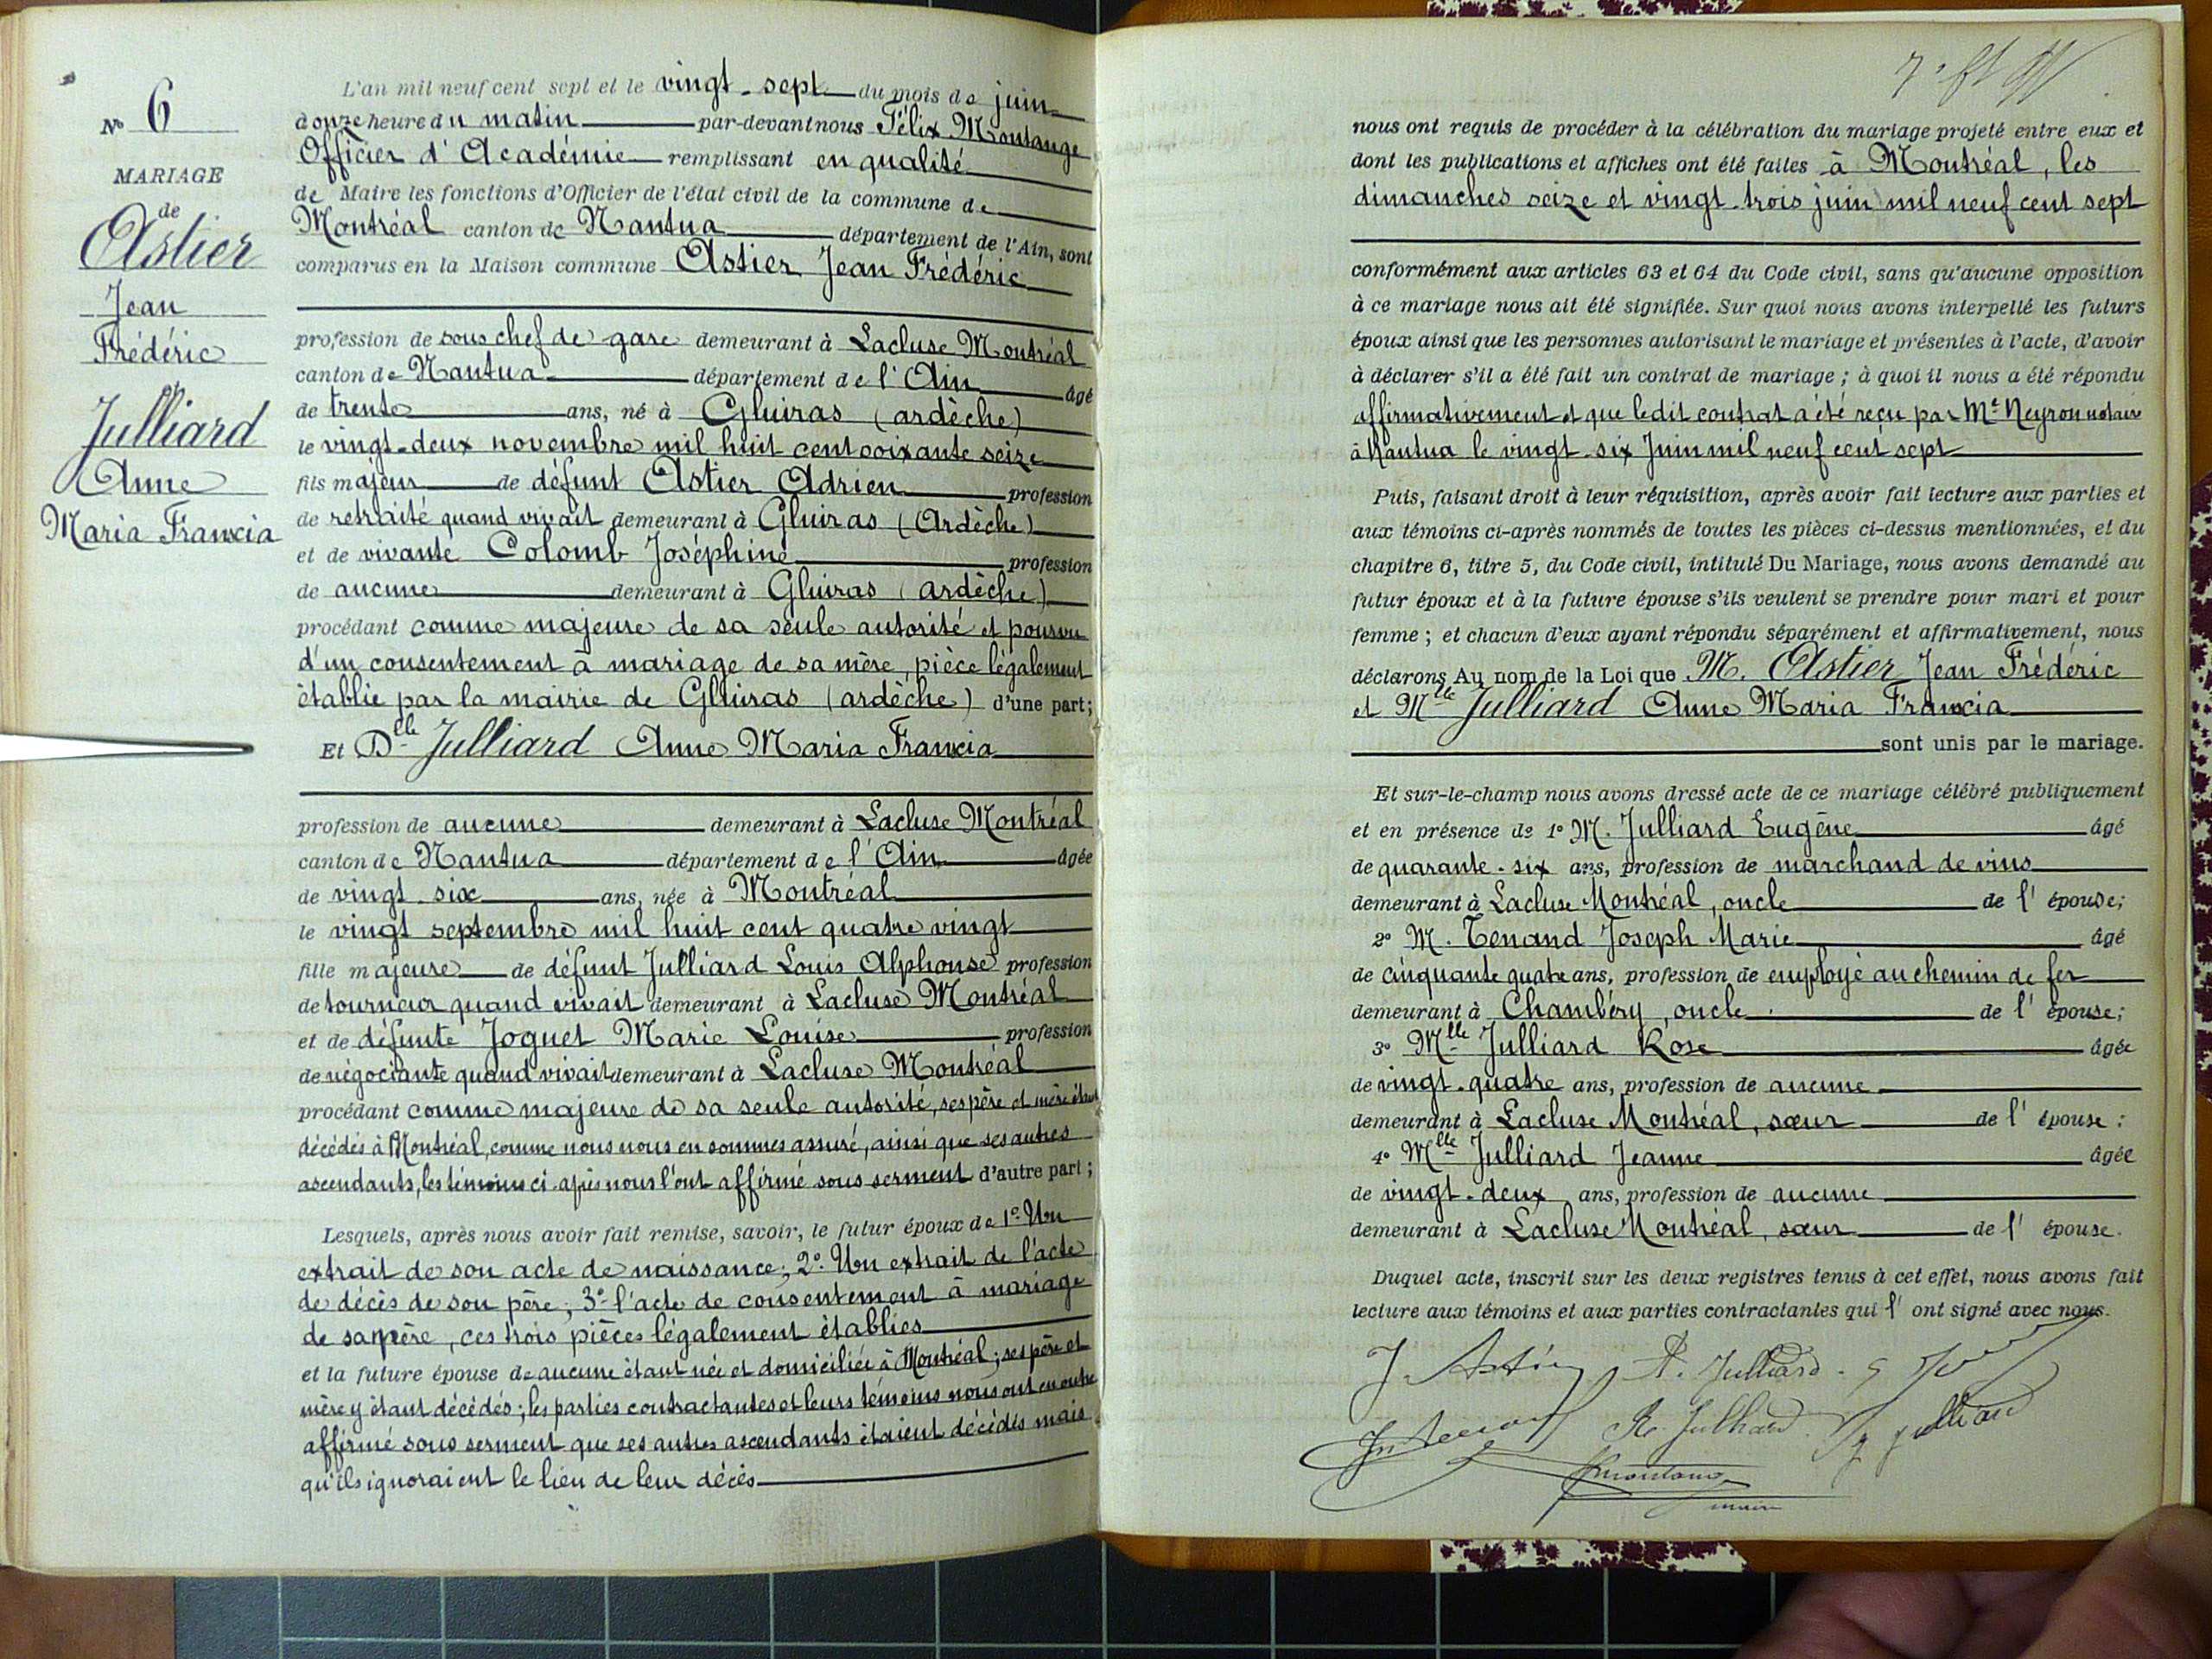 Nº 6
MARIAGE
de
Astier
Jean
Frédéric
Julliard
Anne
Maria Francia
L'an mil neuf cent sept et le vingt-sept du mois de juin
à onze heure du matin par-devant nous Félix Montange
Officier d'Académie remplissant en qualité
de Maire les fonctions d'Officier de l'état civil de la commune de
Montréal canton de Nantua département de l'Ain, sont
comparus en la Maison commune Astier Jean Frédéric
profession de sous chef de gare demeurant à Lacluse Montréal
canton de Nantua département de l'Ain âgé
de trente ans, né à Gluiras (ardèche)
le vingt-deux novembre mil huit cent soixante seize
fils majeur de défunt Astier Adrien profession
de retraité quand vivait demeurant à Gluiras (Ardèche)
et de vivante Colomb Joséphine profession
de aucune demeurant à Gluiras (ardèche)
procédant comme majeure de sa seule autorité et pourvu
d'un consentement à mariage de sa mère, pièce légalement
établie par la mairie de Gluiras (ardèche) d'une part;
Et Dlle Julliard Anne Maria Francia
profession de aucune demeurant à Lacluse Montréal
canton de Nantua département de l'Ain âgée
de vingt-six ans, née à Montréal
le vingt septembre mil huit cent quatre vingt
fille majeure de défunt Julliard Louis Alphonse profession
de tourneur quand vivait demeurant à Lacluse Montréal
et de défunte Joguet Marie Louise profession
de négociante quand vivait demeurant à Lacluse Montréal
procédant comme majeure de sa seule autorité, ses père et mère étant
décédés à Montréal, comme nous nous en sommes assuré, ainsi que ses autres
ascendants, les témoins ci-après nous l'ont affirmé sous serment d'autre part;
Lesquels, après nous avoir fait remise, savoir, le futur époux de 1º Un
extrait de son acte de naissance; 2º Un extrait de l'acte
de décès de son père; 3º l'acte de consentement à mariage
de sa mère, ces trois pièces légalement établies
et la future épouse de aucune étant née et domiciliée à Montréal; ses père et
mère y étant décédés; les parties contractantes et leurs témoins nous ont en outre
affirmé sous serment que ses autres ascendants étaient décédés mais
qu'ils ignoraient le lieu de leur décès
nous ont requis de procéder à la célébration du mariage projeté entre eux et
dont les publications et affiches ont été faites à Montréal, les
dimanches seize et vingt-trois juin mil neuf cent sept
conformément aux articles 63 et 64 du Code civil, sans qu'aucune opposition
à ce mariage nous ait été signifiée. Sur quoi nous avons interpellé les futurs
époux ainsi que les personnes autorisant le mariage et présentes à l'acte, d'avoir
à déclarer s'il a été fait un contrat de mariage; à quoi il nous a été répondu
affirmativement et que ledit contrat a été reçu par Me Neyron notaire
à Nantua le vingt-six Juin mil neuf cent sept
Puis, faisant droit à leur réquisition, après avoir fait lecture aux parties et
aux témoins ci-après nommés de toutes les pièces ci-dessus mentionnées, et du
chapitre 6, titre 5, du Code civil, intitulé Du Mariage, nous avons demandé au
futur époux et à la future épouse s'ils veulent se prendre pour mari et pour
femme; et chacun d'eux ayant répondu séparément et affirmativement, nous
déclarons Au nom de la Loi que M. Astier Jean Frédéric
et Mlle Julliard Anne Maria Francia
sont unis par le mariage.
Et sur-le-champ nous avons dressé acte de ce mariage célébré publiquement
et en présence de 1º M. Julliard Eugène âgé
de quarante-six ans, profession de marchand de vins
demeurant à Lacluse Montréal, oncle de l'épouse;
2º M. Tenand Joseph Marie âgé
de cinquante quatre ans, profession de employé au chemin de fer
demeurant à Chambéry, oncle de l'épouse;
3º Mlle Julliard Rose âgée
de vingt-quatre ans, profession de aucune
demeurant à Lacluse Montréal, sœur de l'épouse:
4º Mlle Julliard Jeanne âgée
de vingt-deux ans, profession de aucune
demeurant à Lacluse Montréal, sœur de l'épouse.
Duquel acte, inscrit sur les deux registres tenus à cet effet, nous avons fait
lecture aux témoins et aux parties contractantes qui l'ont signé avec nous.
J Astier A. Julliard
R. Julliard J Julliard
Montange
maire